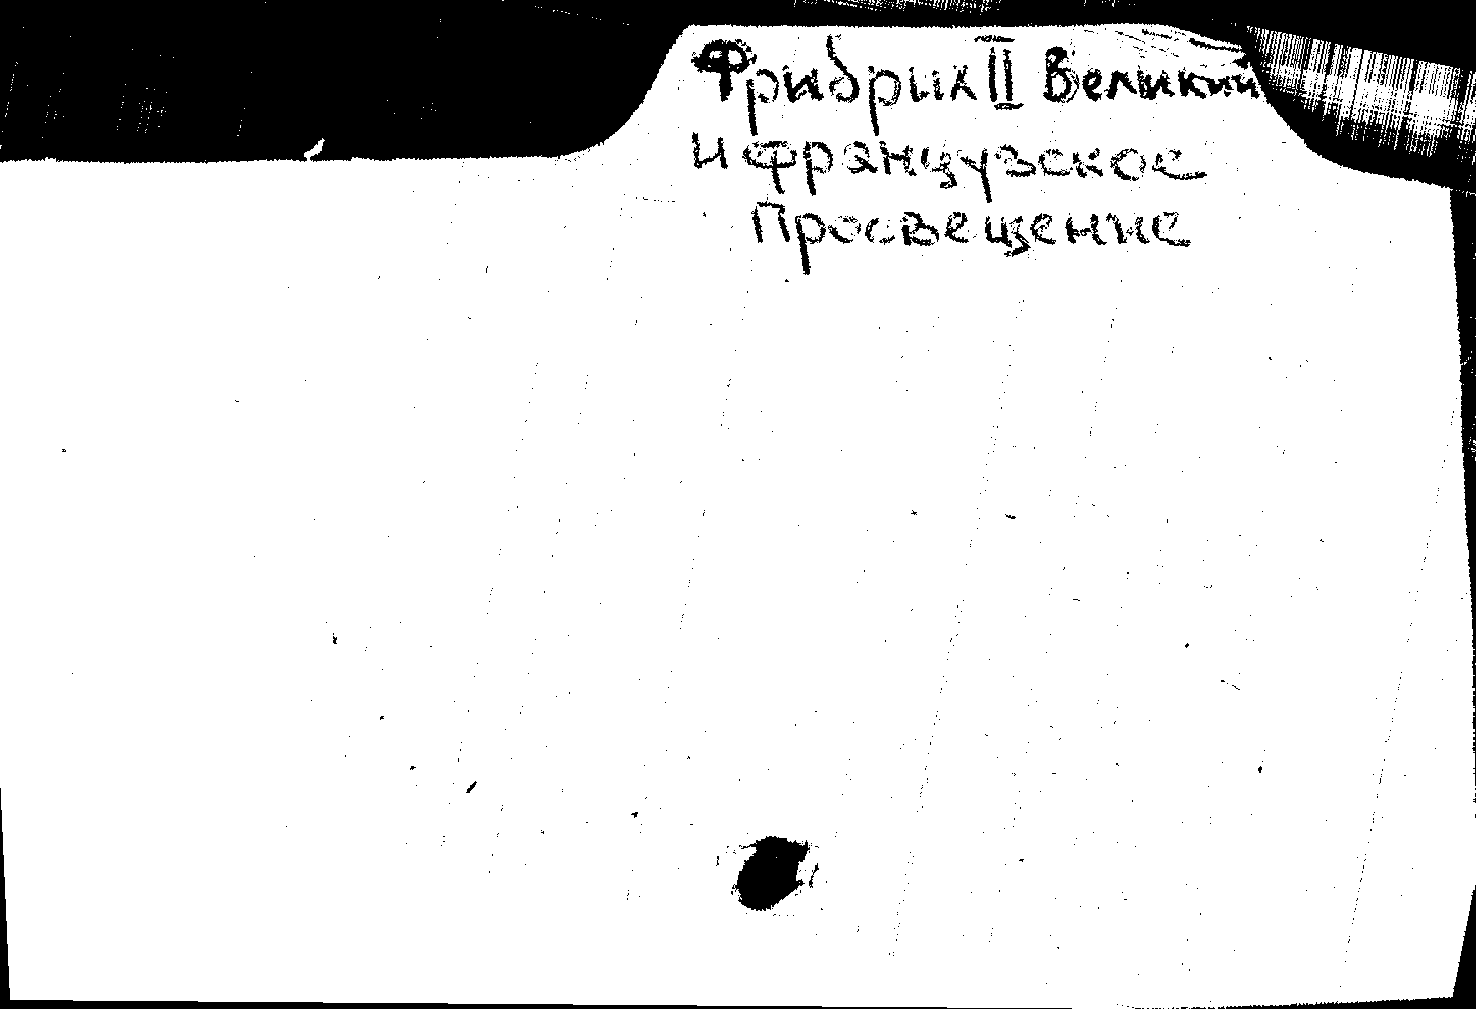 Фридрих II Великий
и французское
Просвещение